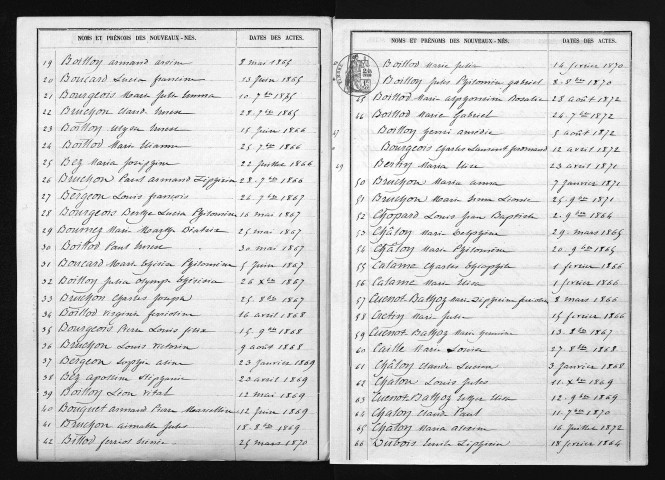 NOMS ET PRÉNOMS DES NOUVEAUX-NÉS. DATES DES ACTES.
19 Boillon armand 8 mai 1865
20 Boucard Lucia 13 juin 1865
21 Bourgeois Marie Julie Emma 10. 7bre 1865
22 Bruchon Claud. 28. 7bre 1865
23 Boillon 15 juin 1866
24 Boillod Marie 25. 7bre 1866
25 Bez Maria Joséphine 22 juillet 1866
26 Bruchon Paul armand 28. 7bre 1866
27 Bergeon Louis françois 26 7bre 1867
28 Bourgeois Berthe Lucia Philomène 16 mai 1867
29 Journez Marie Marthe Béatrix 25 mai 1867
30 Boillod Paul 30 mai 1867
31 Boucard Marie Philomène 5 juin 1867
32 Boillon Julia olympe 26 Xbre 1867
33 Bruchon Charles Joseph 25. 8bre 1867
34 Boillod virginie 16 avril 1868
35 Bourgeois Pierre Louis 15. 9bre 1868
36 Bruchon Louis victorin 9 août 1868
37 Bergeon 23 janvier 1869
38 Bez apolline Stéphanie 23 avril 1869
39 Boillon Léon vital 12 mai 1869
40 Bouquet armand Pierre Marcellin 12 juin 1869
41 Bruchon aimable Jules 18. 8bre 1869
42 Billod 25 mars 1870
NOMS ET PRÉNOMS DES NOUVEAUX-NÉS. DATES DES ACTES.
Boillod Marie Julie 14 février 1870
Boillon Jules Philomène gabriel 8. 8bre 1870
45 Boillod Marie alphonsine Rosalie 28 août 1872
46 Boillod Marie Gabriel 26. 7bre 1872
47 Boillon henri amédée 5 août 1872
Bourgeois Charles Laurent 12 avril 1872
49 Maria 23 avril 1871
50 Bruchon Maria anna 7 janvier 1871
51 Bruchon Marie Léonie 25. 9bre 1871
52 Chopard Louis Jean Baptiste 2. 9bre 1864
53 Châlon Marie Delphine 29. mars 1865
54 Châlon Marie Philomène 20. 9bre 1865
55 Calame Charles 1 février 1866
56 Calame Marie 1 février 1866
57 Cuenot Bathoz Marie 8 mars 1866
58 Marie Julie 15 février 1866
59 Cuenot Bathoz Marie 13. 8bre 1867
60 Caille Marie Louise 27. 8bre 1868
61 Châlon Claude Lucien 3 janvier 1868
62 Châlon Louis Jules 11. Xbre 1869
63 Cuenot Bathoz 12. 9bre 1869
64 Châlon Claude Paul 11. 7bre 1870
65 Châlon Maria 16 juillet 1872
66 Dubois Emile 18 février 1864